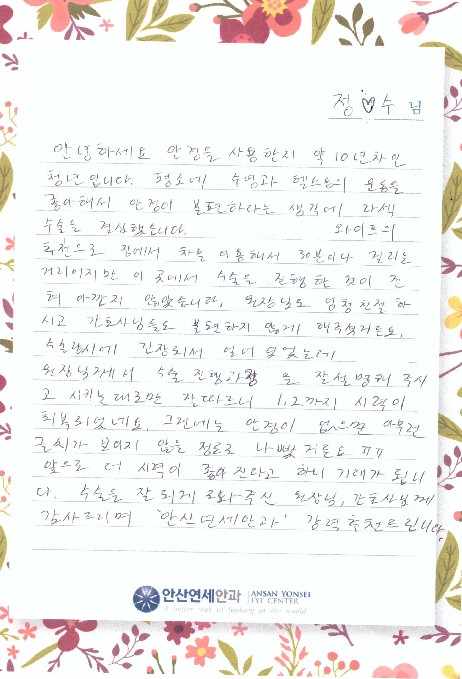 정♡수 님
안녕하세요 안경을 사용한지 약 10년차인
청년입니다. 평소에 수영과 헬스등의 운동을
좋아해서 안경이 불편하다는 생각에 라섹
수술을 결심했습니다. 와이프의
추천으로 집에서 차를 이용해서 30분이나 걸리는
거리이지만 이 곳에서 수술을 진행한 것이 전
혀 아깝지 않았습니다. 원장님도 엄청 친절하
시고 간호사님들도 불편하지 않게 해주셨거든요.
수술당시에 긴장되서 일어 없었는데
원장님께서 수술 진행과정 을 잘 설명해 주시
고 시키는대로만 잘따르니 1.2까지 시력이
회복되었네요. 그전에는 안경이 없으면 아무런
글씨가 보이지 않을 정도로 나빴거든요 ㅠㅠ
앞으로 더 시력이 좋아진다고 하니 기대가 됩니
다. 수술을 잘 되게 도와주신 원장님, 간호사님께
감사드리며 '안산연세안과' 강력추천드립니다.
안산연세안과 ANSAN YONSEI
EYE CENTER
A better way of looking at the world